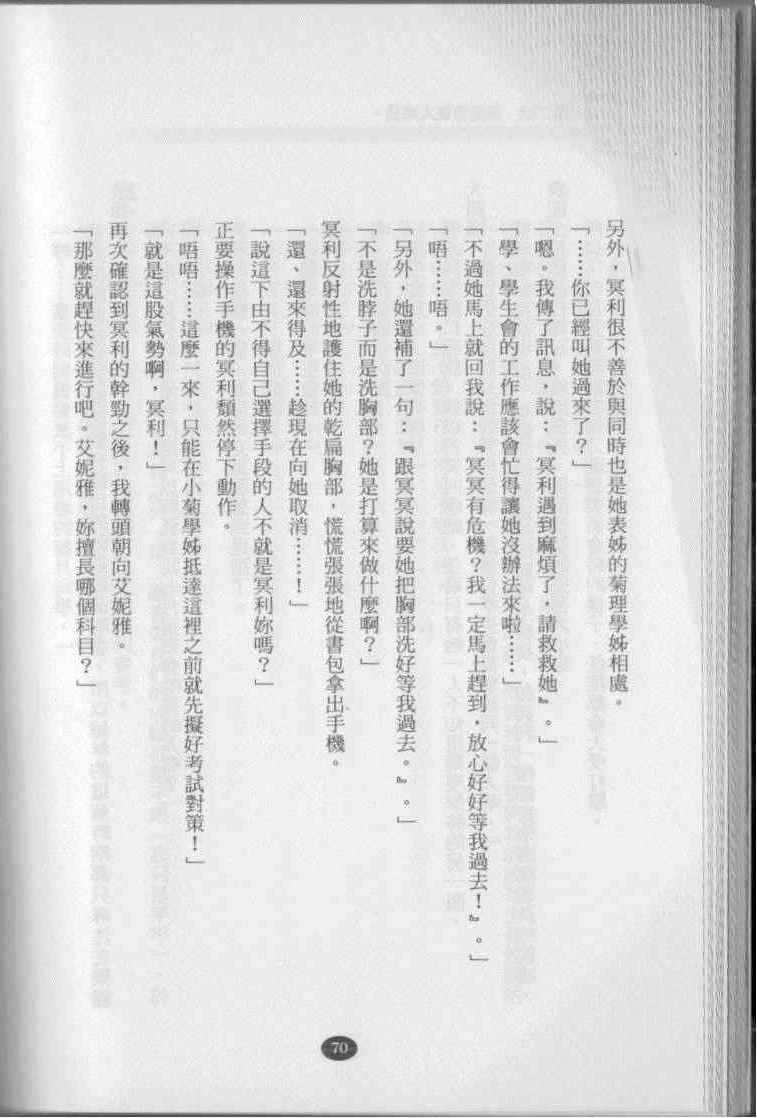 另外，冥利很不善於與同時也是她表姊的菊理學姊相處。
「……你已經叫她過來了？」
「嗯。我傳了訊息，說：『冥利遇到麻煩了，請救救她』。」
「學、學生會的工作應該會忙得讓她沒辦法來啦……」
「不過她馬上就回我說：『冥冥有危機？我一定馬上趕到，放心好好等我過去！』。」
「唔……唔。」
「另外，她還補了一句：『跟冥冥說要她把胸部洗好等我過去。』。」
「不是洗脖子而是洗胸部？她是打算來做什麼啊？」
冥利反射性地護住她的乾扁胸部，慌慌張張地從書包拿出手機。
「還、還來得及……趁現在向她取消……！」
「說這下由不得自己選擇手段的人不就是冥利妳嗎？」
正要操作手機的冥利頹然停下動作。
「唔唔……這麼一來，只能在小菊學姊抵達這裡之前就先擬好考試對策！」
「就是這股氣勢啊，冥利！」
再次確認到冥利的幹勁之後，我轉頭朝向艾妮雅。
「那麼就趕快來進行吧。艾妮雅，妳擅長哪個科目？」
70